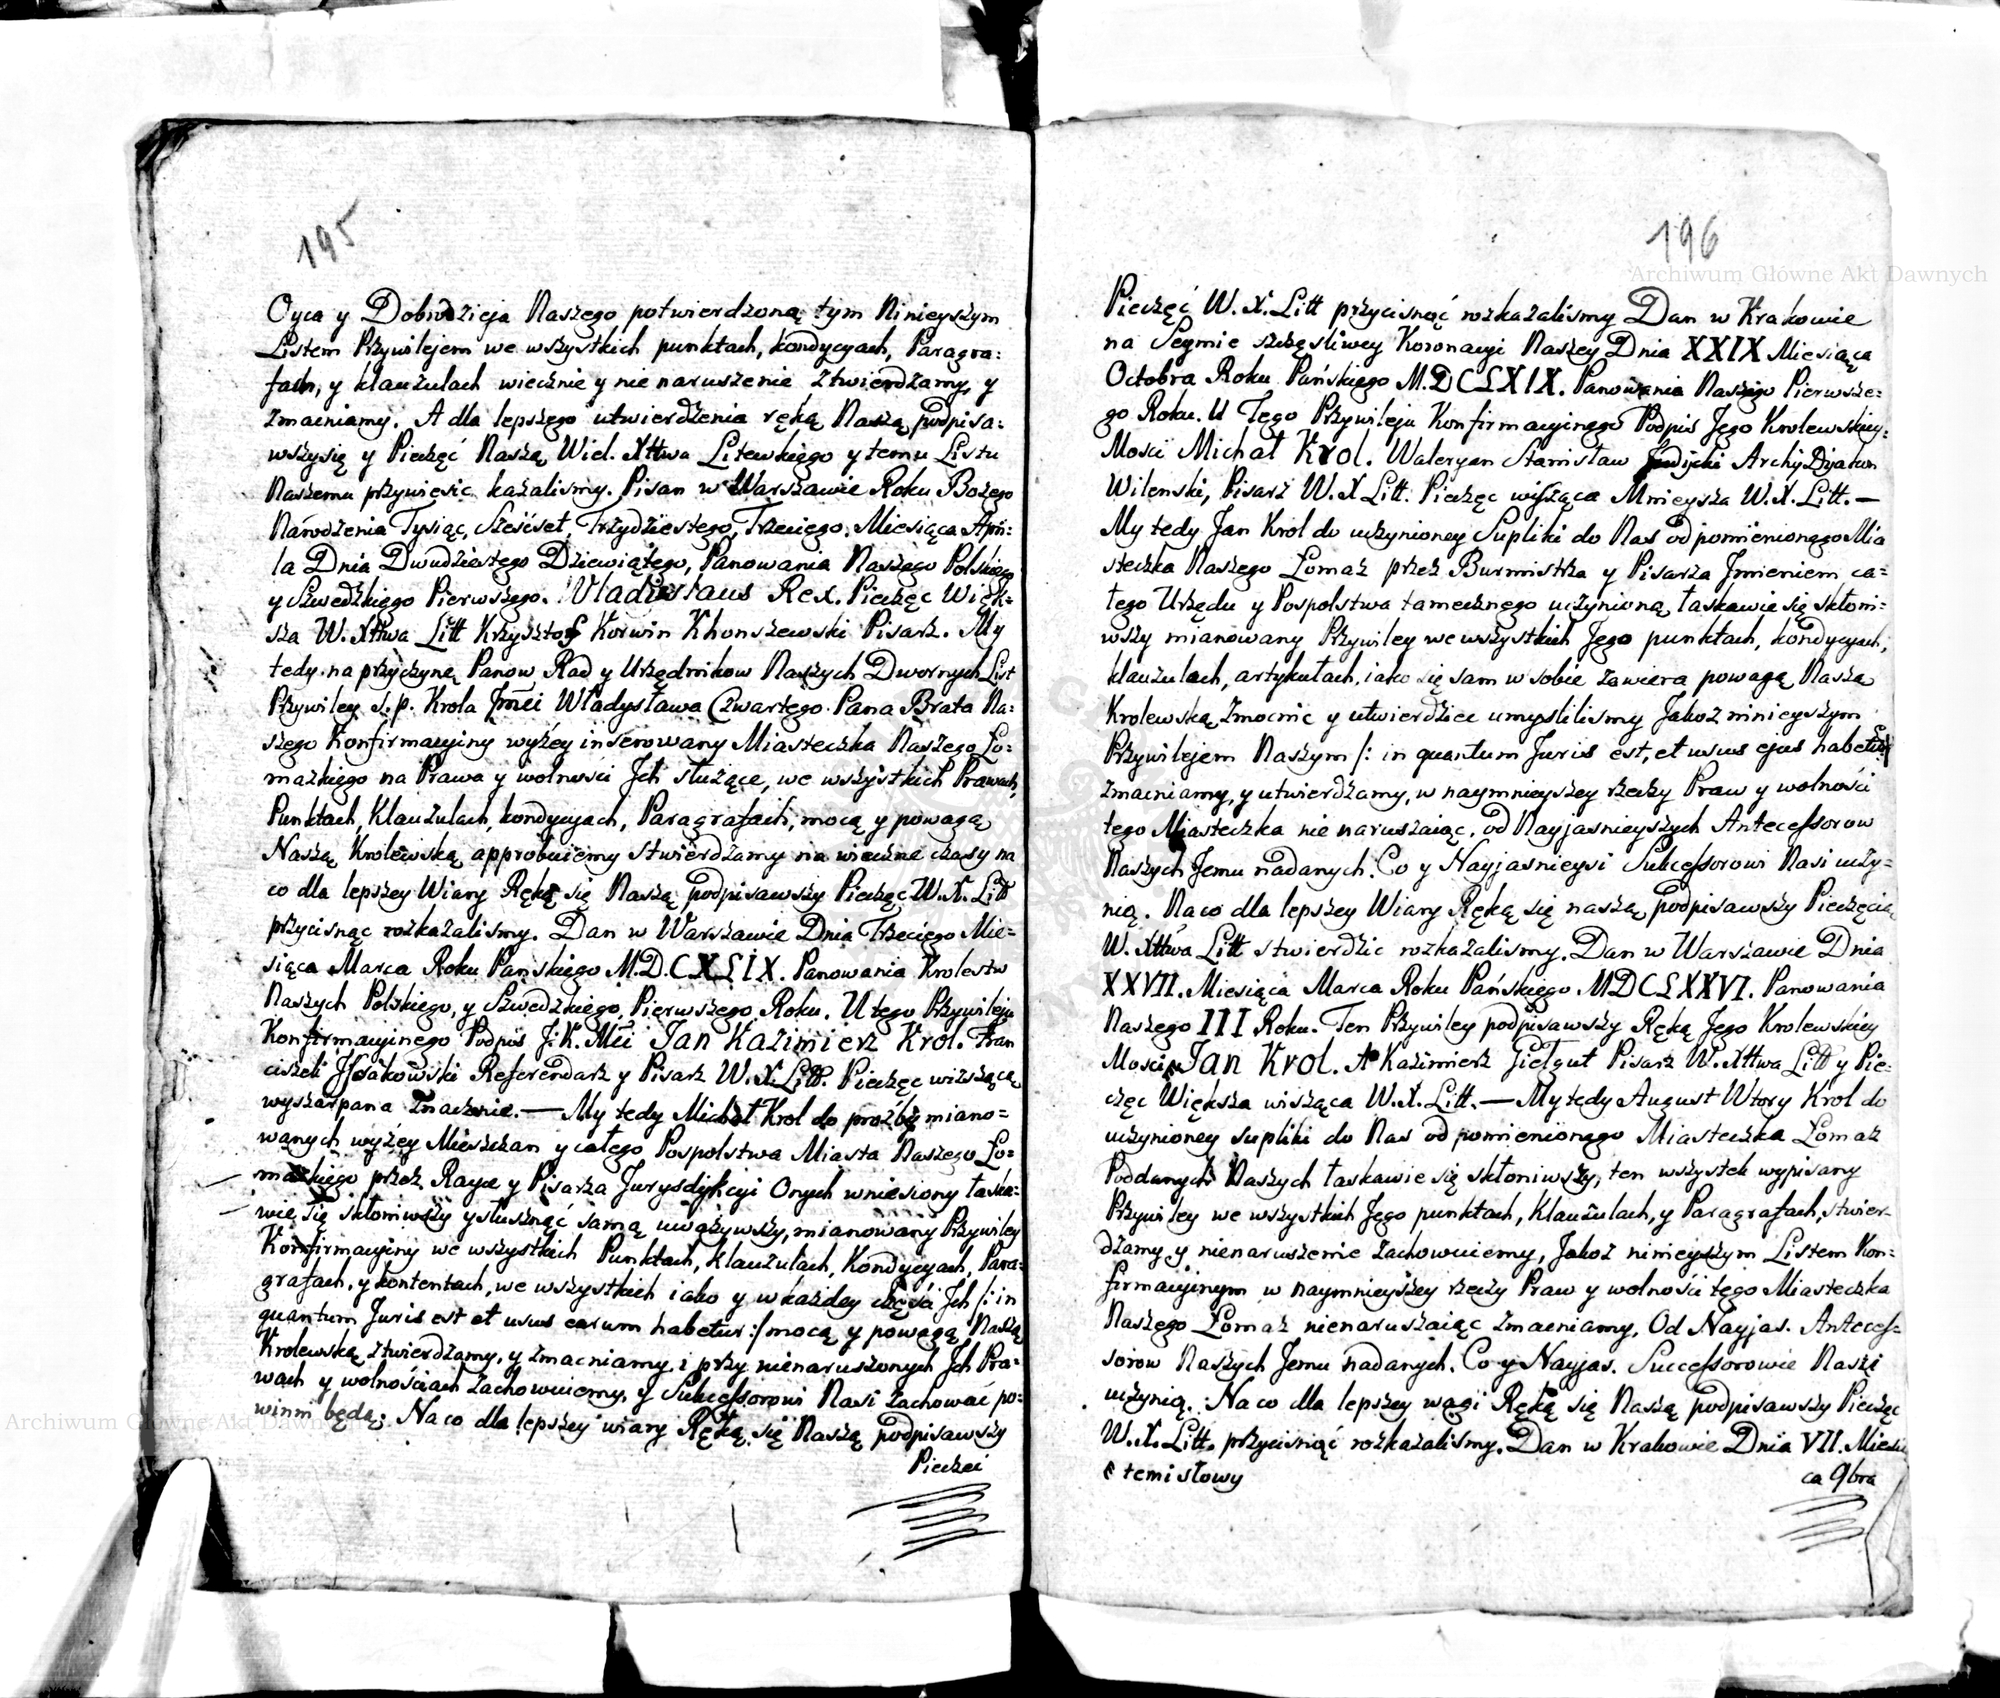 195
Oyca y Dobrodzieja Naszego potwierdzoną tym Ninieyszym
Listem Przywilejem we wszystkich punktach, kondycyach, Paragra:
fach, y klauzulach wiecznie y nie naruszenie ztwierdzamy, y
zmacniamy. A dla lepszego utwierdzenia ręką Naszą podpisa:
wszysię y Pieczęć Naszą Wiel. Xttwa Litewskiego y temu Listu
Naszemu przywiesic kazalismy. Pisan w Warszawie Roku Bożego
Narodzenia Tysiąc, Sześćset, Trzydziestego, Trzeciego. Miesiąca Apri-
la Dnia Dwudziestego Dziewiątego, Panowania Naszego Polskiego
y Szwedzkiego Pierwszego. Vladislaus Rex. Pieczęc Więk:
sza W. Xttwa Litt Krzysztof Korwin Khonszewski Pisarz. My
tedy na przyczynę Panow Rad y Urzędnikow Naszych Dwornych List
Przywiley s. p. Krola Jmći Władysława Czwartego Pana Brata Na:
szego Konfirmacyiny wyżey inserowany Miasteczka Naszego Ło:
mazkiego na Prawa y wolnosci Jch służące, we wszystkich Prawach,
Punktach, Klauzulach, kondycyach, Paragrafach, mocą y powagą
Naszą Krolewską approbuiemy stwierdzamy na wieczne czasy na
co dla lepszey Wiary Ręką się Naszą podpisawszy Pieczęc W. X. Litt
przycisnąc rozkazalismy. Dan w Warszawie Dnia Trzeciego Mie=
siąca Marca Roku Pańskiego M.D.CXLIX. Panowania Krolestw
Naszych Polskiego, y Szwedzkiego, Pierwszego Roku. U tego Przywileju
Konfirmacyinego Podpis J: K. Mći Jan Kazimierz Krol. Fran
ciszek Jsaakowski Referendarz y Pisarz W. X. Litt. Pieczęc wisząca
wyszarpana znacznie. — My tedy Michał Krol do prozby miano=
wanych wyżey Mieszczan y całego Pospolstwa Miasta Naszego Ło=
mazkiego przez Rayce y Pisarza Jurysdykcyi Onych wniesiony łaska:
wie się skłoniwszy y słuszność samą uważywszy, mianowany Przywiley
Konfirmacyiny we wszystkich Punktach, klauzulach, Kondycyach, Para:
grafach, y kontentach, we wszystkich iako y w każdey części Jch /: in
quantum Juris est et usus earum habetur :/ mocą y powagą Naszą
Krolewską ztwierdzamy, y zmacniamy, i przy nienaruszonych Jch Pra:
wach y wolnościach zachowuiemy, y Sukcessorowi Nasi zachować po-
winni będą: Na co dla lepszey wiary Ręką się Naszą podpisawszy
Pieczęć
196
Pieczęć W. X. Litt przycisnąć rozkazalismy Dan w Krakowie
na Seymie szczęsliwey Koronacyi Naszey Dnia XXIX Miesiąca
Octobra Roku Pańskiego M.DCLXIX. Panowania Naszego Pierwsze:
go Roku. U Tego Przywileju Konfirmacyinego Podpis Jego Krolewskiey:
Mosci Michał Krol. Waleryan Stanisław Archy Dyakon
Wilenski, Pisarz W. X Litt. Pieczęc wisząca Mnieysza W. X. Litt. —
My tedy Jan Krol do uczynioney Supliki do Nas od pomienionego Mia
steczka Naszego Łomaz przez Burmistrza y Pisarza Jmieniem ca=
łego Urzędu y Pospolstwa tamecznego uczynioną łaskawie się skłoni-
wszy mianowany Przywiley we wszystkich Jego punktach, kondycyach,
klauzulach, artykułach, iako się sam w sobie zawiera powagą Naszą
Krolewską zmocnic y utwierdzic umyslilismy Jakoz ninieyszym
Przywilejem Naszym /: in quantum Juris est, et usus ejus habetur :/
zmacniamy, y utwierdzamy, w naymnieyszey rzeczy Praw y wolności
tego Miasteczka nie naruszaiąc, od Nayjasnieyszych Antecessorow
Naszych Jemu nadanych. Co y Nayjasnieysi Sukcessorowi Nasi uczy-
nią. Na co dla lepszey Wiary Ręką się naszą podpisawszy Pieczęcią
W. Xttwa Litt stwierdzic rozkazalismy. Dan w Warszawie Dnia
XXVII. Miesiąca Marca Roku Pańskiego MDCLXXVI. Panowania
Naszego III Roku. Ten Przywiley podpisawszy Ręką Jego Krolewskiey
Mosci Jan Krol. Kazimierz Giełgut Pisarz W. Xttwa Litt y Pie:
częc Większa wisząca W. X. Litt. — My tedy August Wtory Krol do
uczynioney supliki do Nas od pomienionego Miasteczka Łomaz
Poddanych Naszych łaskawie się skłoniwszy, ten wszystek wypisany
Przywiley we wszystkich Jego punktach, klauzulach, y Paragrafach, stwier-
dzamy y nienaruszenie zachowuiemy, Jakoz ninieyszym Listem Kon=
firmacyinym w naymnieyszey rzeczy Praw y wolności tego Miasteczka
Naszego Łomaz nienaruszaiąc zmacniamy, Od Nayjas. Anteces-
sorow Naszych Jemu nadanych. Co y Nayjas. Successorowie Naszi
uczynią. Na co dla lepszey wagi Ręką się Naszą podpisawszy Pieczęc
W. X. Litt. przycisnąć rozkazalismy. Dan w Krakowie Dnia VII. Miesią
temi słowy
ca 9bra